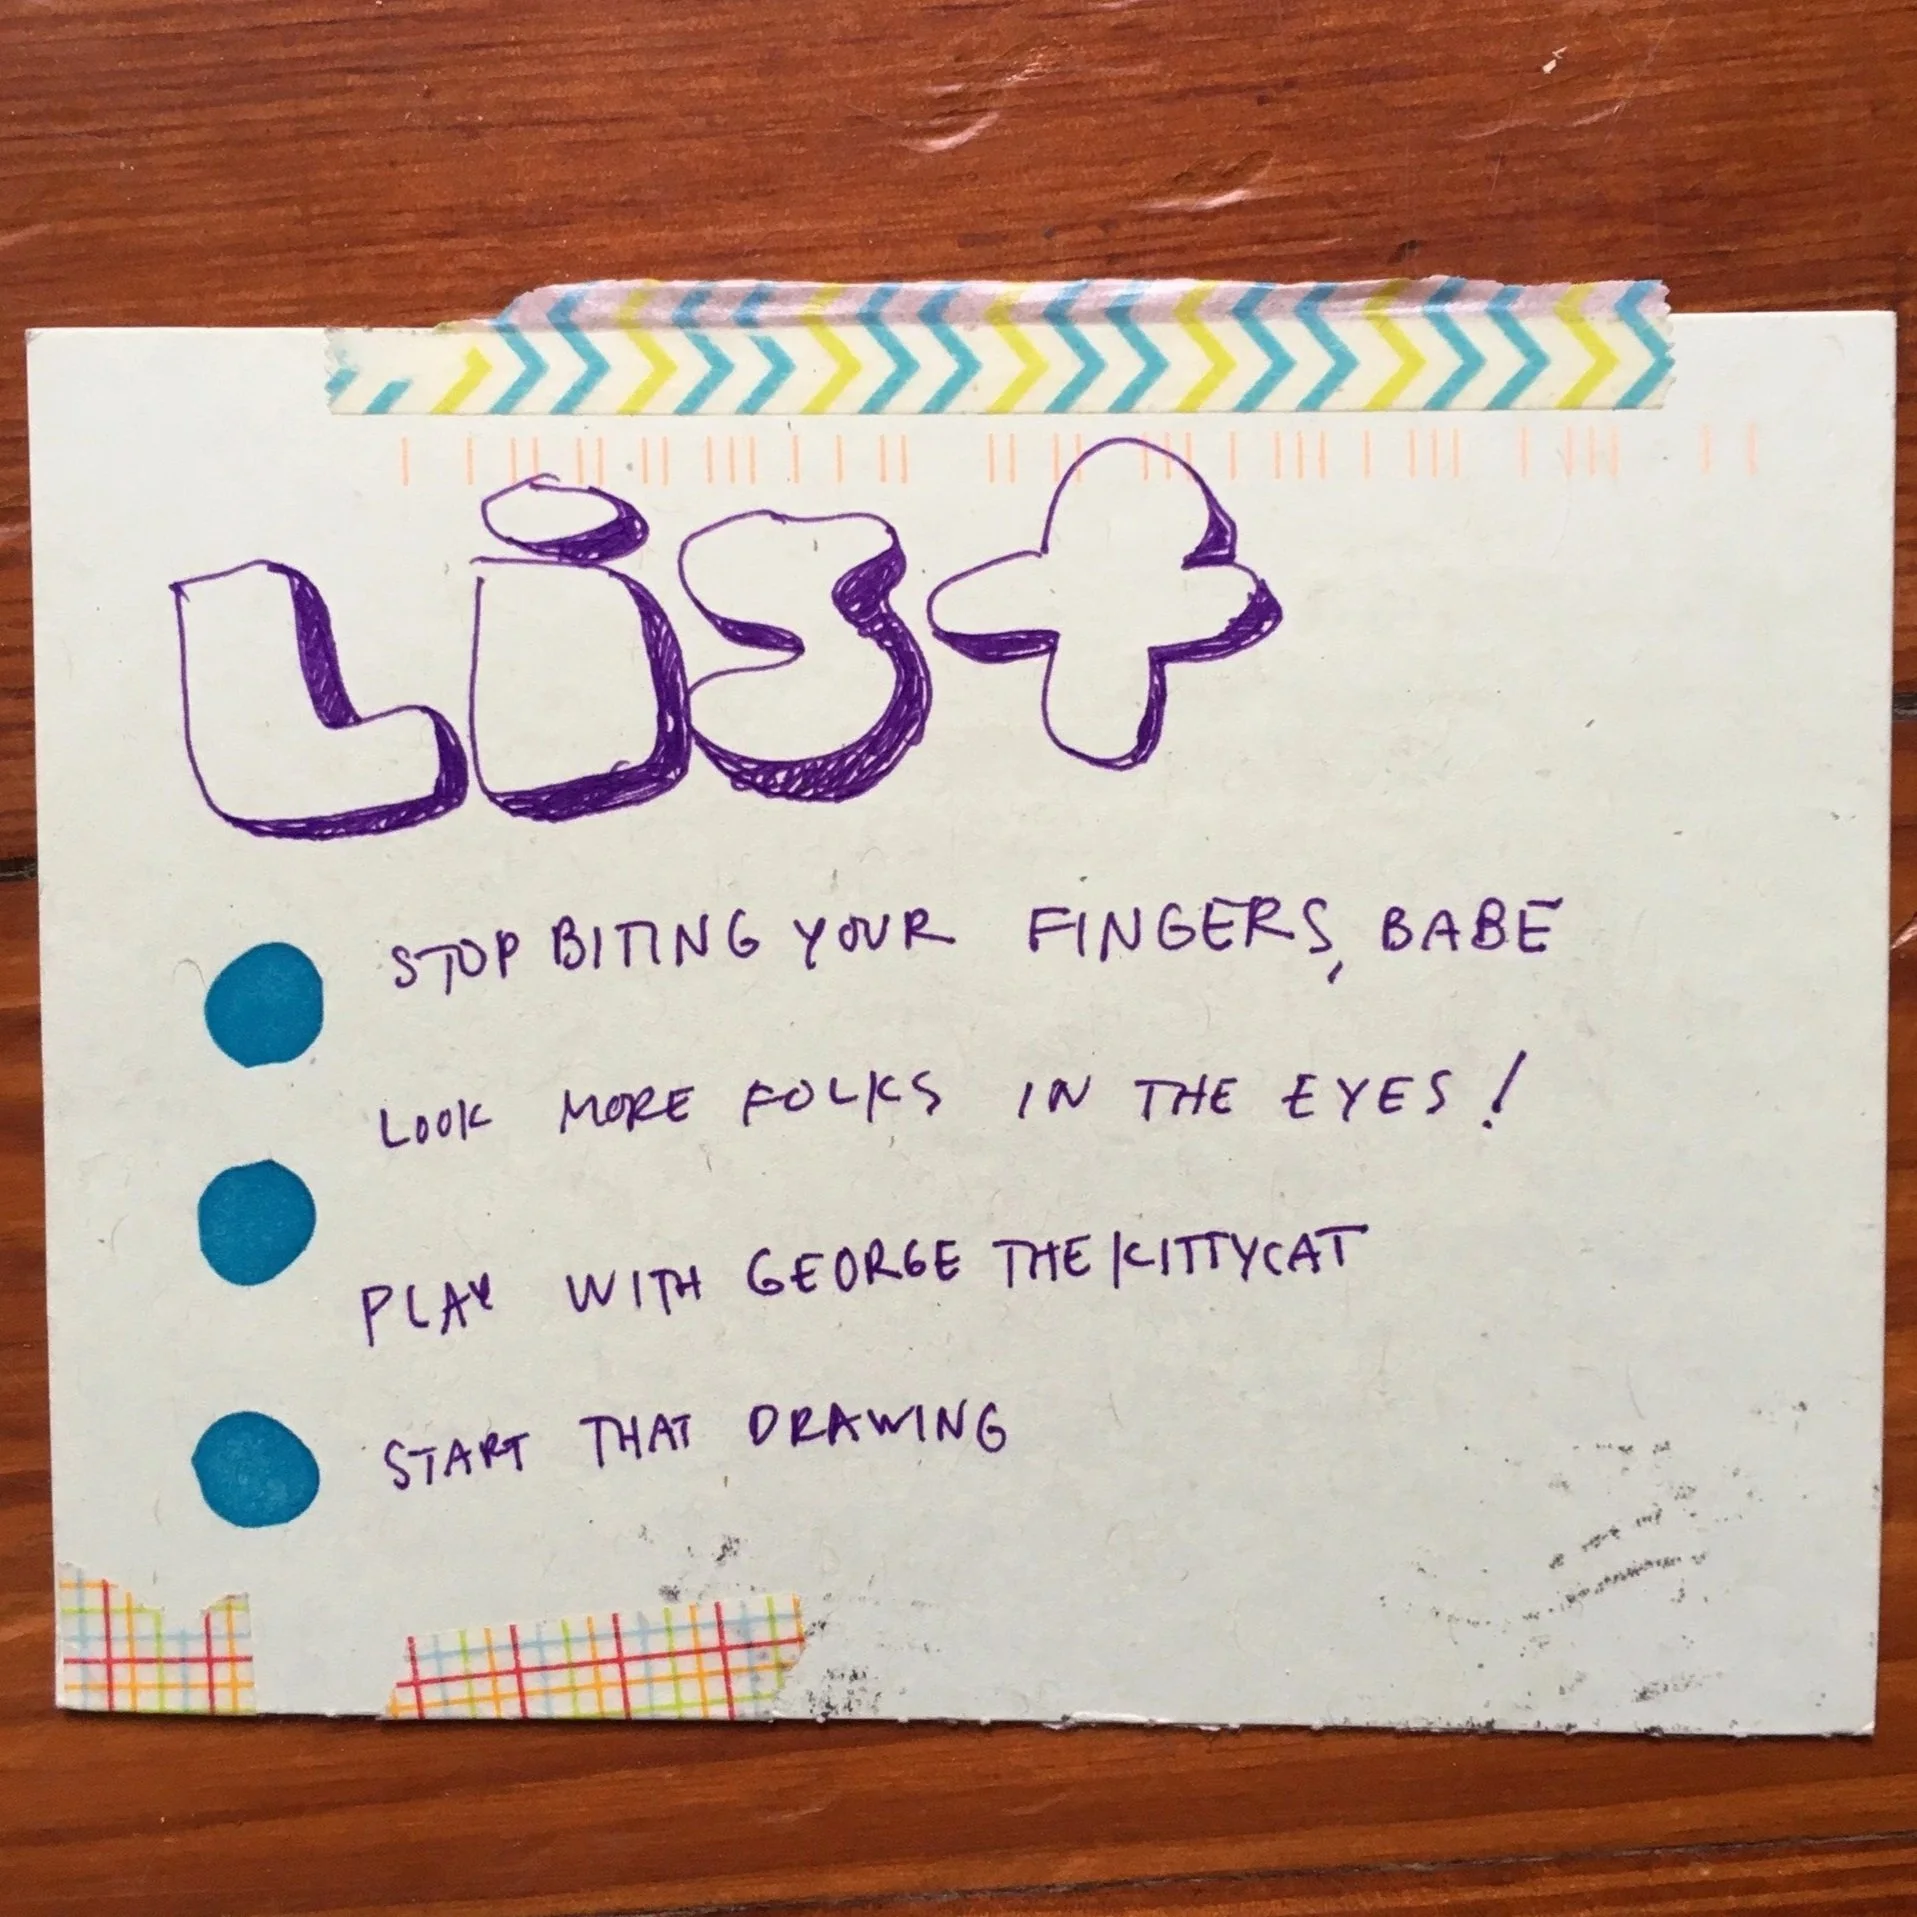 List
STOP BITING YOUR FINGERS, BABE
LOOK MORE FOLKS IN THE EYES!
PLAY WITH GEORGE THE KITTYCAT
START THAT DRAWING